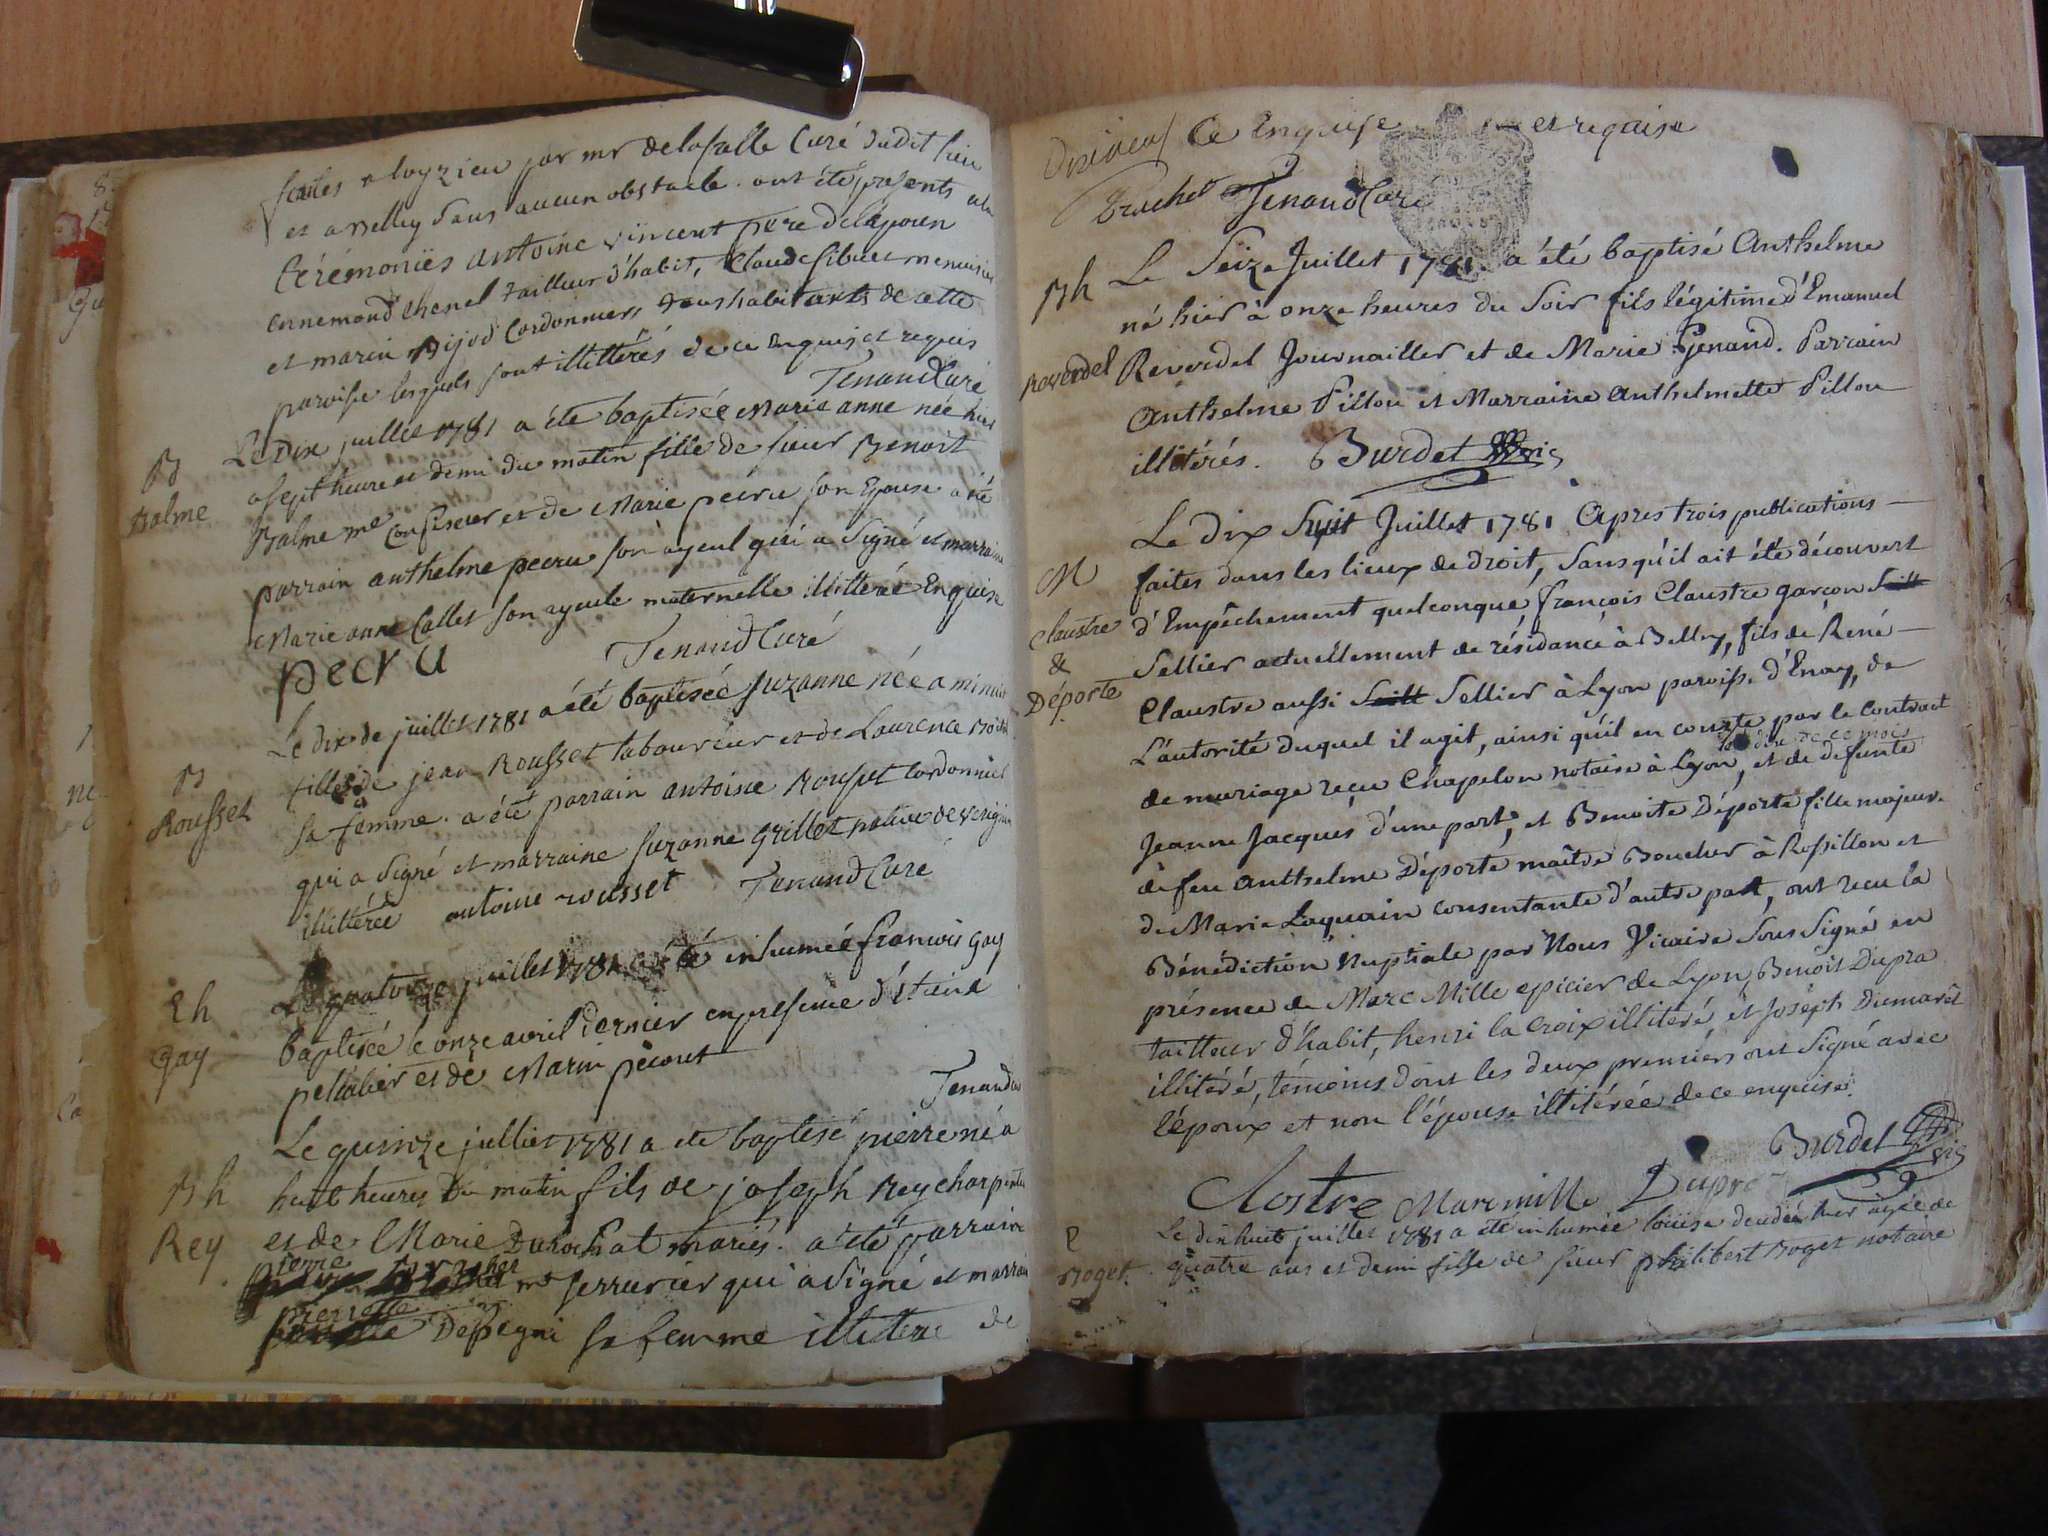 faites a loyzieu par mr delasalle Curé dudit lieu
et a Belley sans aucun obstacle. ont été présents a la
Cérémoniës antoine vincent pere delepouse
ennemond chenel tailleur d'habit, Claude sibuet menuisier
et marin Bijod Cordonniers tous habitants de cette
paroisse lesquels sont illittérés de ce enquis et requis
Tenand Curé
B
Balme
Le Dix juillet 1781 a été baptisée Marie anne née hier
a sept heure et demi du matin fille de sieur Benoit
Balme me Confiseur et de Marie pecru son Epouse a été
parrain anthelme pecru son ayeul qui a Signé et marraine
Marie anne Callet son ayeule maternelle illitterée Enquise
pecru Tenand Curé
B
Rousset
Le dix de juillet 1781 a été baptisée suzanne née a minuit
fille de jean Rousset laboureur et de Laurence
sa femme. a été parrain antoine Rousset Cordonnier
qui a Signé et marraine suzanne Grillet native de
illittérée antoine rousset Tenand Curé
Eh
gay
Le quatorze juillet 1781 a été inhumée francois Gay
baptisée le onze avril dernier en presence d'etiene
peltalier et de Marin pecout
Tenand
Bh
Rey
Le quinze julliet 1781 a ete baptisé pierre né a
huit heures Du matin fils de joseph Rey charpentier
et de Marie Durochat mariés. a été parrain
pierre trachet mt serrurier qui a Signé et marraine
pierrette Depegni sa femme illitere de
ce Enquise et requise
trachet Tenand Curé
Bh
Reverdel
Le Seize Juillet 1781 a été baptisé Anthelme
né hier à onze heures du Soir fils légitime d'Emanuel
Reverdel Journaillier et de Marie Genand. Parrain
Anthelme Pillou et Marraine Anthelmette Pillou
illitérés. Burdet Vic
M
Claustre
&
Déporte
Le dix huit Juillet 1781 Apres trois publications
faites dans les lieux de droit, Sans qu'il ait été découvert
d'Empêchement quelconque, françois Claustre garçon
Sellier actuëllement de résidance à Belley, fils de René
Claustre aussi Sellier à Lyon paroisse d'Enay, de
L'autorité duquel il agit, ainsi qu'il en conste par le Contract
dix de ce mois
de mariage reçu Chapelon notaire à Lyon, et de defunte
Jeanne Jacques d'une part, et Benoite Déporte fille majeure
de feu Anthelme Déporte maître Boucher à Rossillon et
de Marie Laquain consentante d'autre part, ont reçu la
Bénédiction Nuptiale par Nous Vicaire Sous Signé en
présence de Marc Mille epicier de Lyon, Benoit Dupra
tailleur d'habit, henri la Croix illitéré, et Joséph Dumarêt
illitéré, témoins dont les deux premiers ont Signé avec
l'époux et non l'épouse illitérée de ce enquise.
Burdet Vic
Clostre Marcmille Dupré
E
Roget
Le dix huit juillet 1781 a été inhumée loüise decedée hier agée de
quatre ans et demi fille de sieur philibert Roget notaire